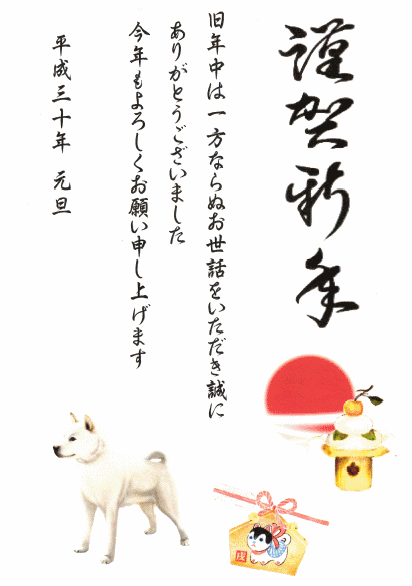 謹賀新年
旧年中は一方ならぬお世話をいただき誠に
ありがとうございました
今年もよろしくお願い申し上げます
平成三十年 元旦
戌